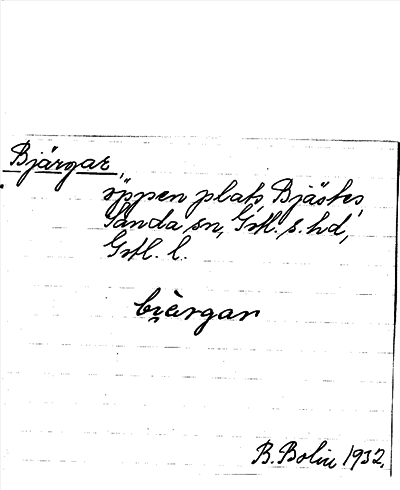 Bjärgar,
öppen plats, Bjästes,
Sanda sn, Gtl. s. hd,
Gtl. l.
bi̯ärgar
B. Bolin 1932.